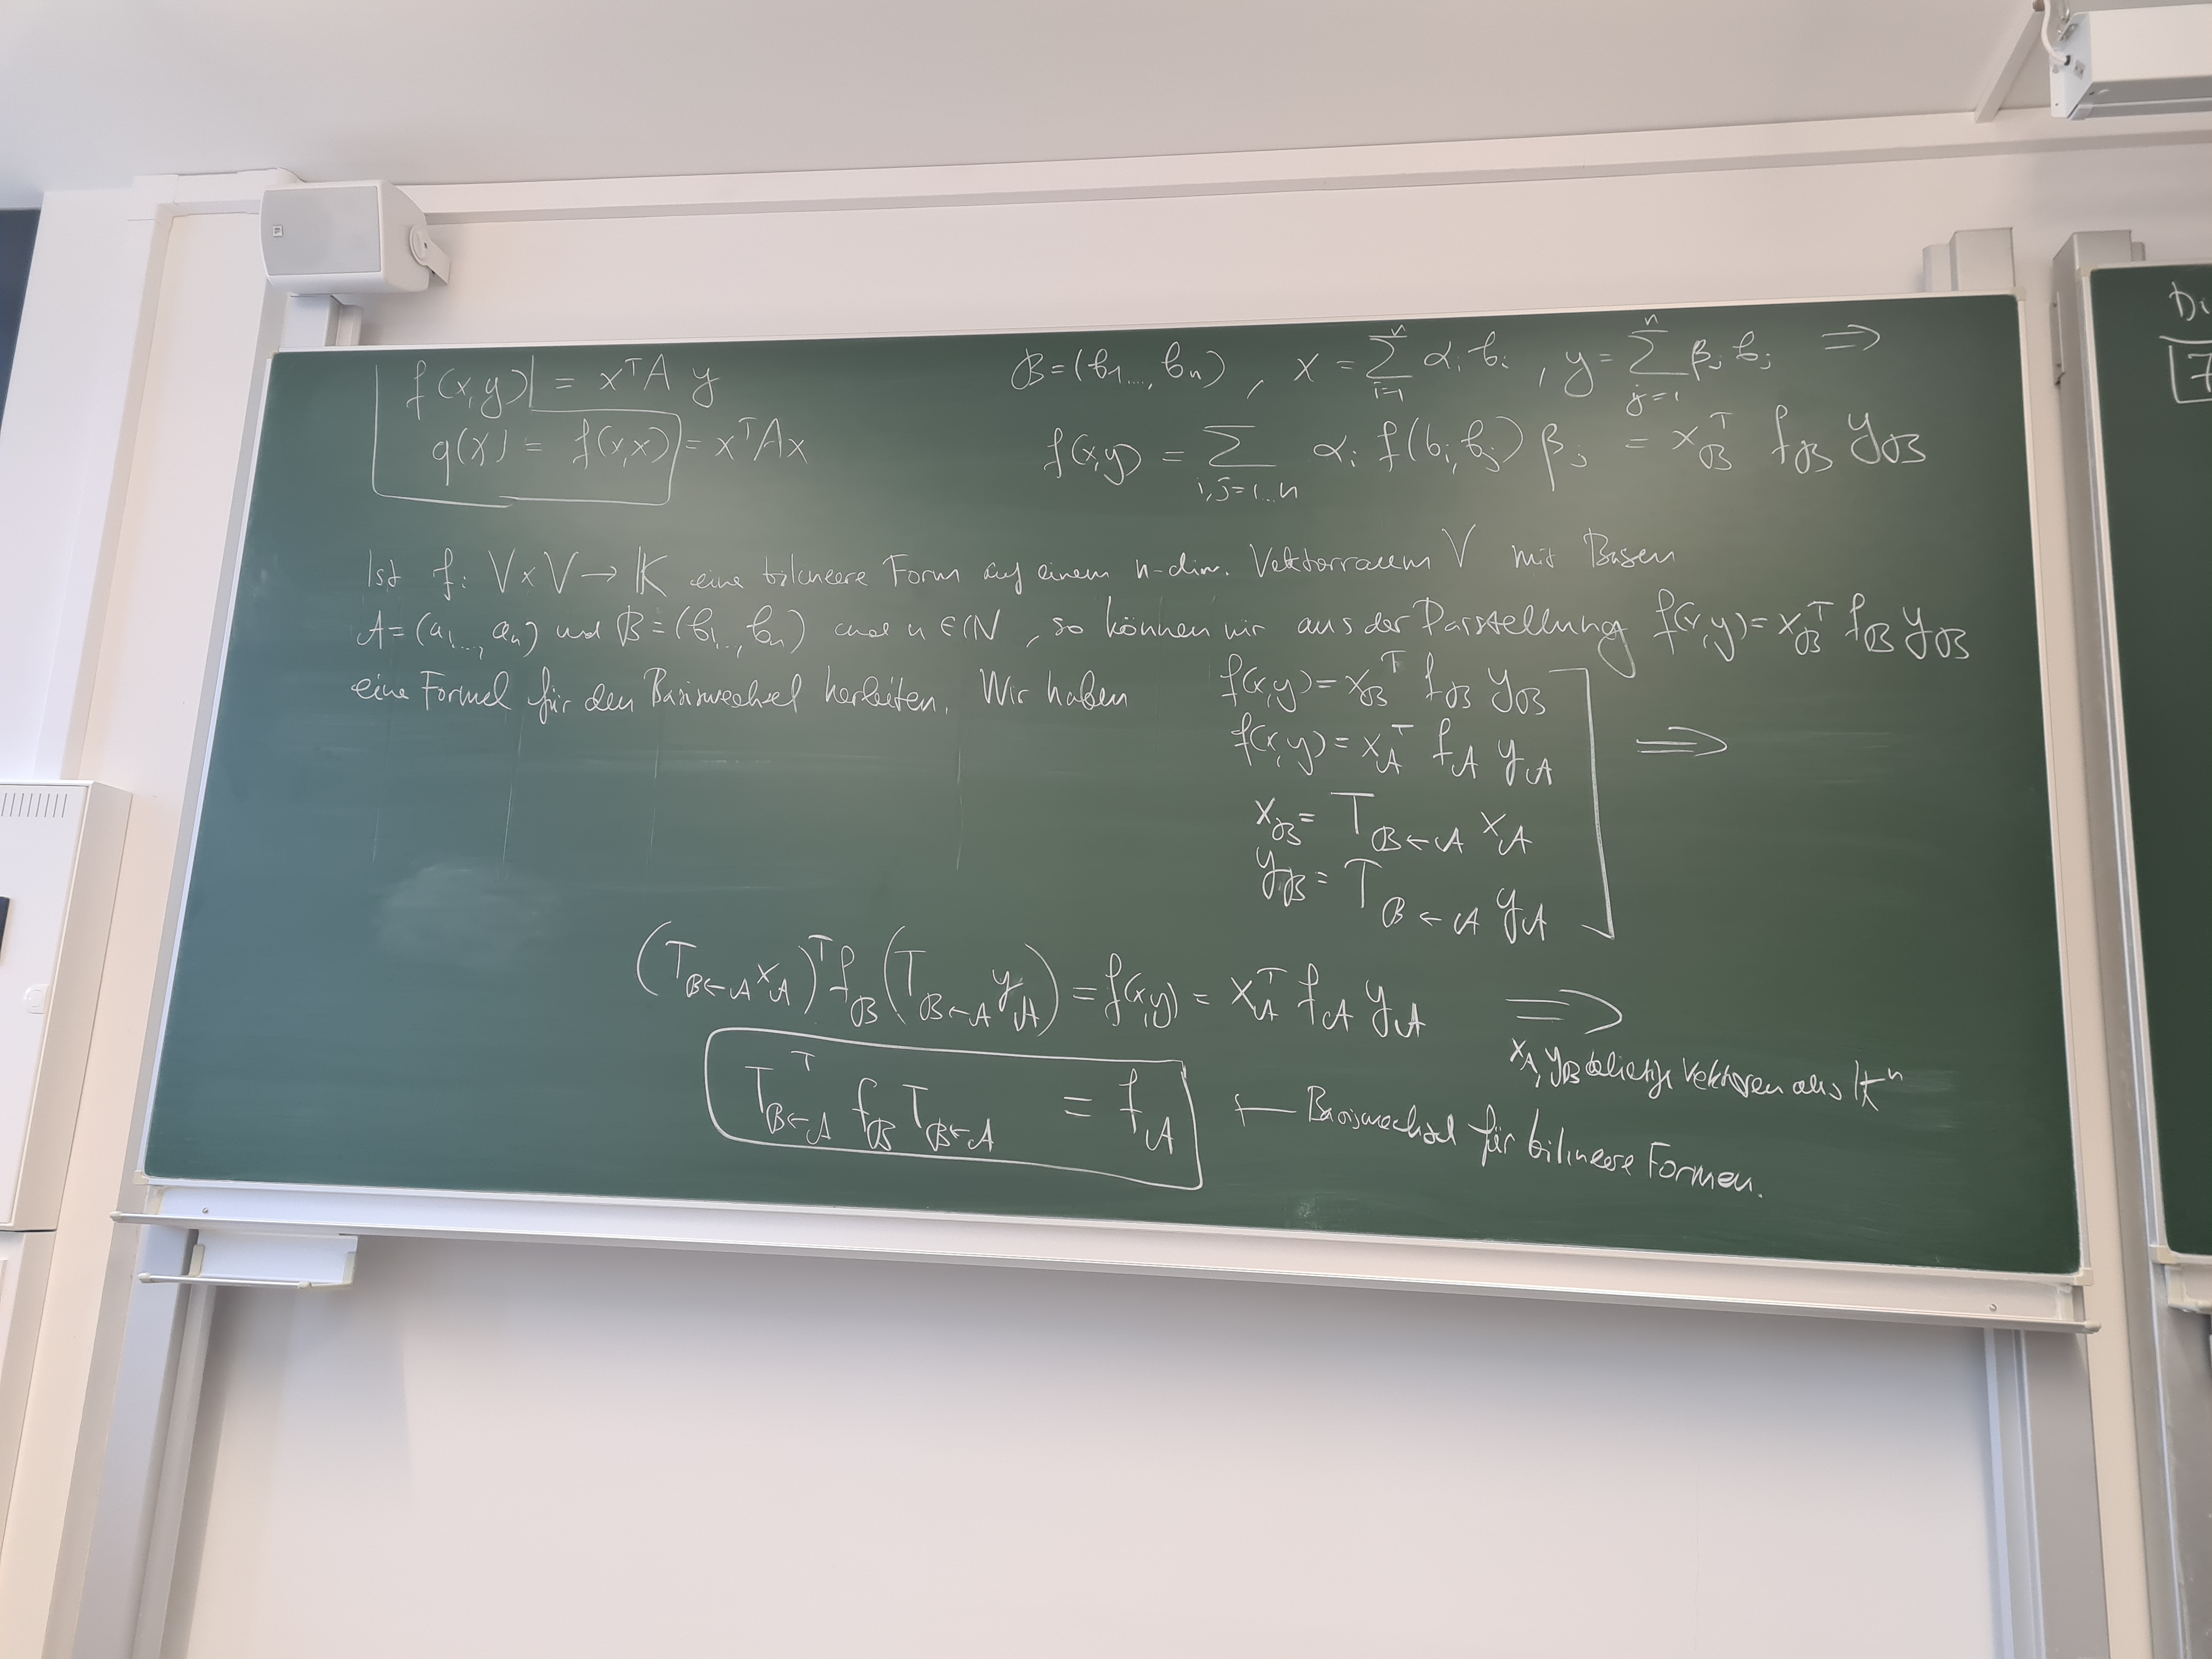 f(x,y) = xᵀA y
q(x) = f(x,x) = xᵀAx
ℬ=(b₁,...,bₙ), x = ∑ᵢ₌₁ⁿ αᵢ bᵢ, y = ∑ⱼ₌₁ⁿ βⱼ bⱼ ⇒
f(x,y) = ∑ᵢ,ⱼ₌₁...ₙ αᵢ f(bᵢ,bⱼ) βⱼ = x_ℬᵀ f_ℬ y_ℬ
Ist f: V×V → 𝕂 eine bilineare Form auf einem n-dim. Vektorraum V mit Basen
𝒜=(a₁,..., aₙ) und ℬ=(b₁,..., bₙ) und n∈ℕ, so können wir aus der Darstellung f(x,y)=x_ℬᵀ f_ℬ y_ℬ
eine Formel für den Basiswechsel herleiten. Wir haben f(x,y)=x_ℬᵀ f_ℬ y_ℬ
f(x,y)=x_𝒜ᵀ f_𝒜 y_𝒜 ⇒
x_ℬ = T_ℬ←𝒜 x_𝒜
y_ℬ = T_ℬ←𝒜 y_𝒜
(T_ℬ←𝒜 x_𝒜)ᵀ f_ℬ (T_ℬ←𝒜 y_𝒜) = f(x,y) = x_𝒜ᵀ f_𝒜 y_𝒜 ⇒
x_𝒜, y_ℬ Vektoren aus 𝕂ⁿ
T_ℬ←𝒜ᵀ f_ℬ T_ℬ←𝒜 = f_𝒜 ← Basiswechsel für bilineare Formen.
Di
7